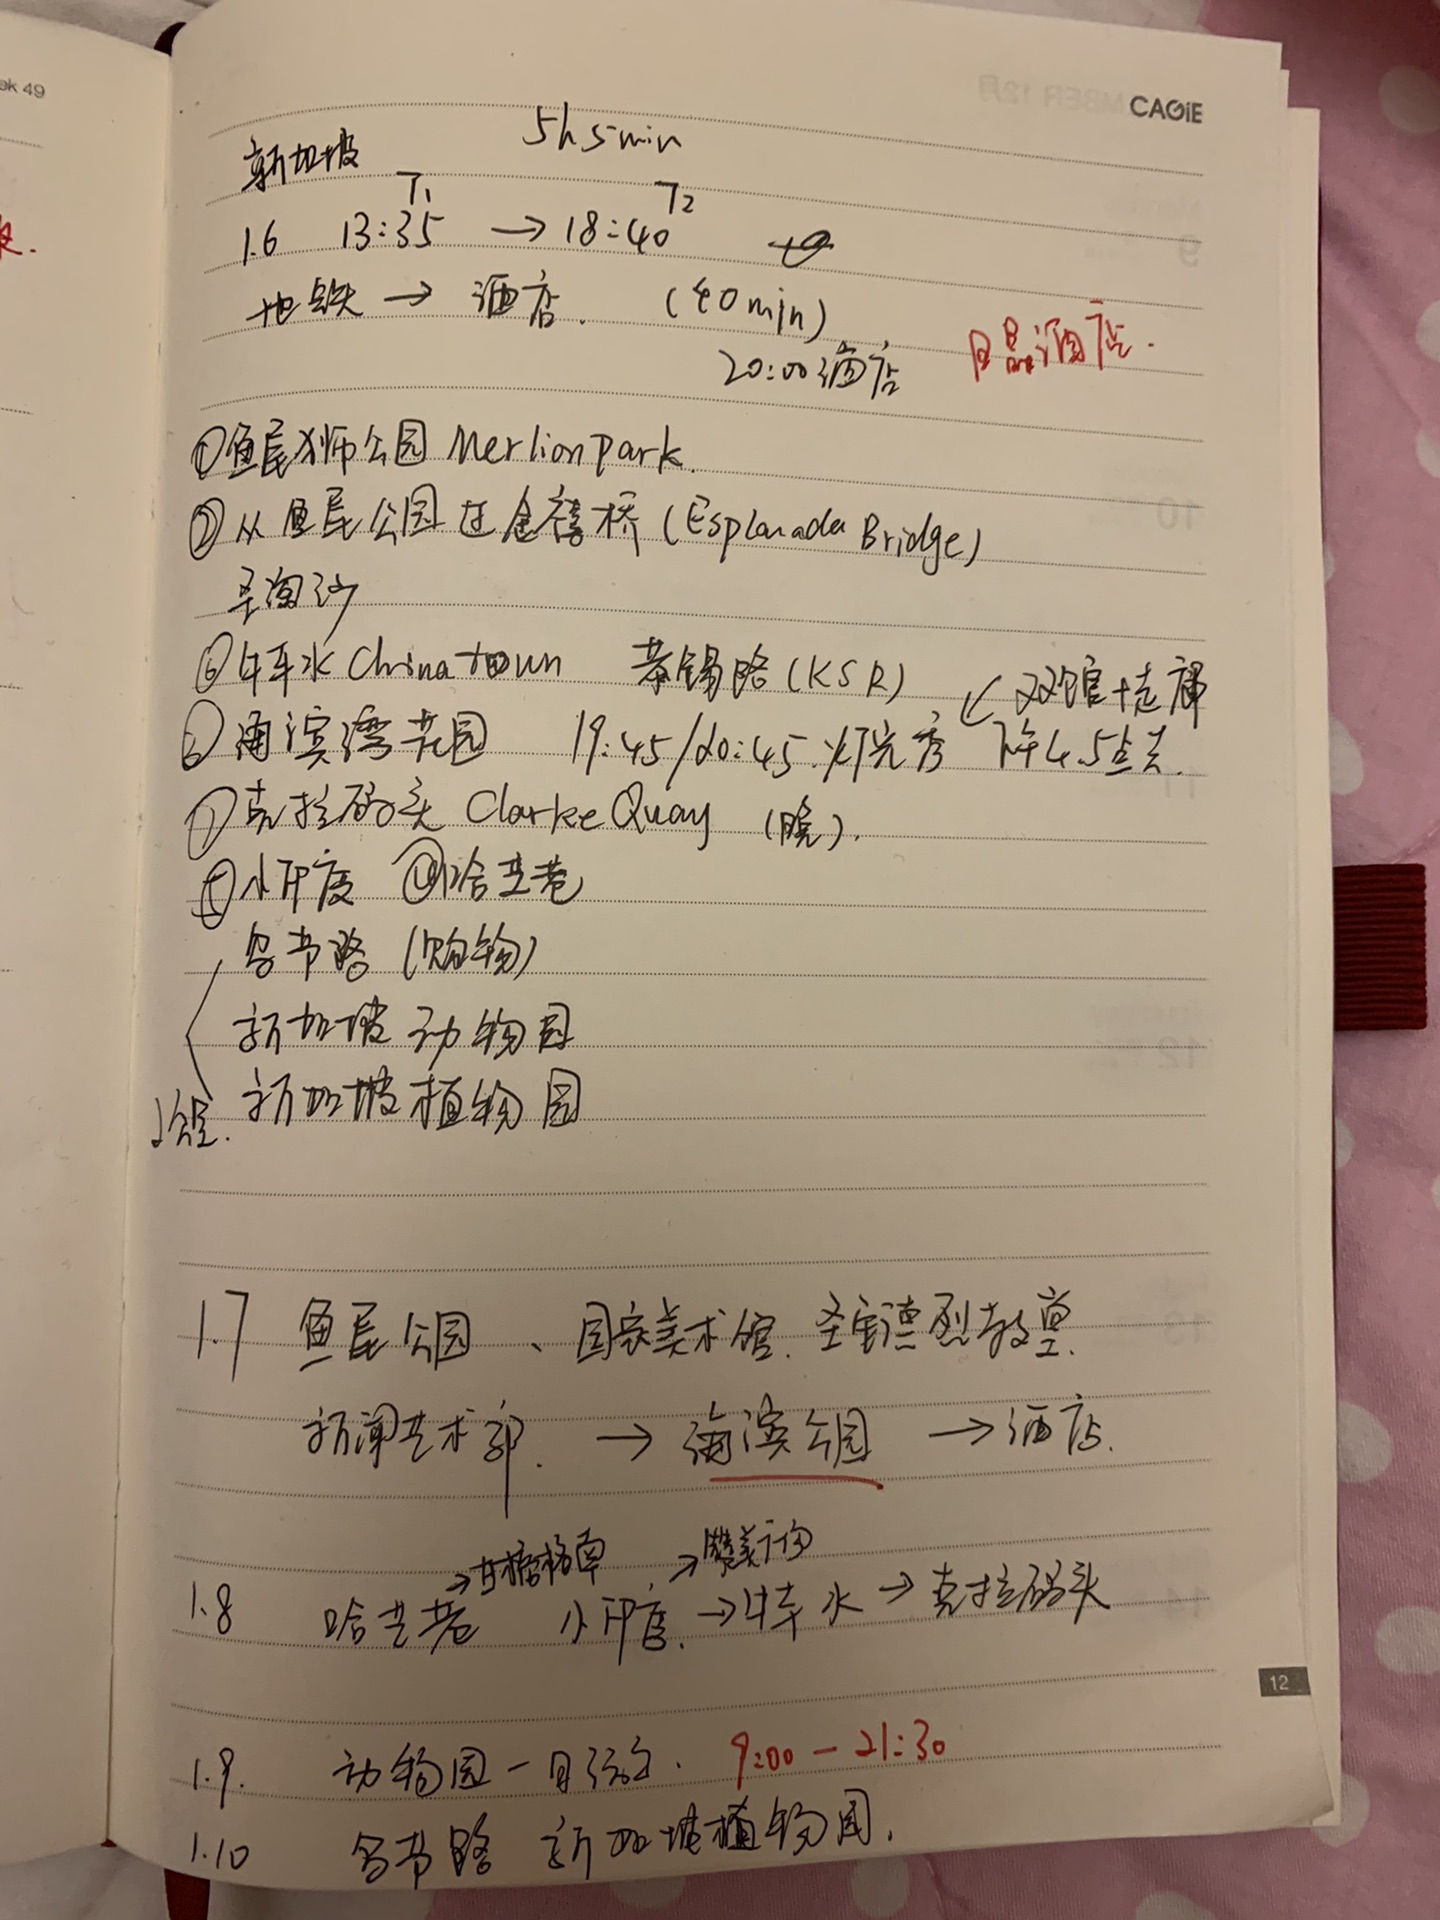 ek 49
CAGIE
新加坡 5h5min
T1 T2
1.6 13:35 → 18:40
地铁 → 酒店. (40min)
20:00酒店 晶酒店.
①鱼尾狮公园 Merlion Park.
②从鱼尾公园过金禧桥 (Esplanada Bridge)
圣淘沙
⑥牛车水 Chinatown 恭锡路 (KSR) ↙双馆+走廊
③海滨湾花园 19:45/20:45.灯光秀 下午4.5点去.
⑦克拉码头 Clarke Quay (晚).
⑤小印度 ④哈芝巷
乌节路 (购物)
新加坡动物园
新加坡植物园
1.7 鱼尾公园、国家美术馆.圣安德烈教堂.
新闻艺术部. → 海滨公园 → 酒店.
→甘榜格南 →赞美广场
1.8 哈芝巷 小印度. → 牛车水 → 克拉码头
12
1.9. 动物园一日 . 9:00 — 21:30
1.10 乌节路 新加坡植物园.